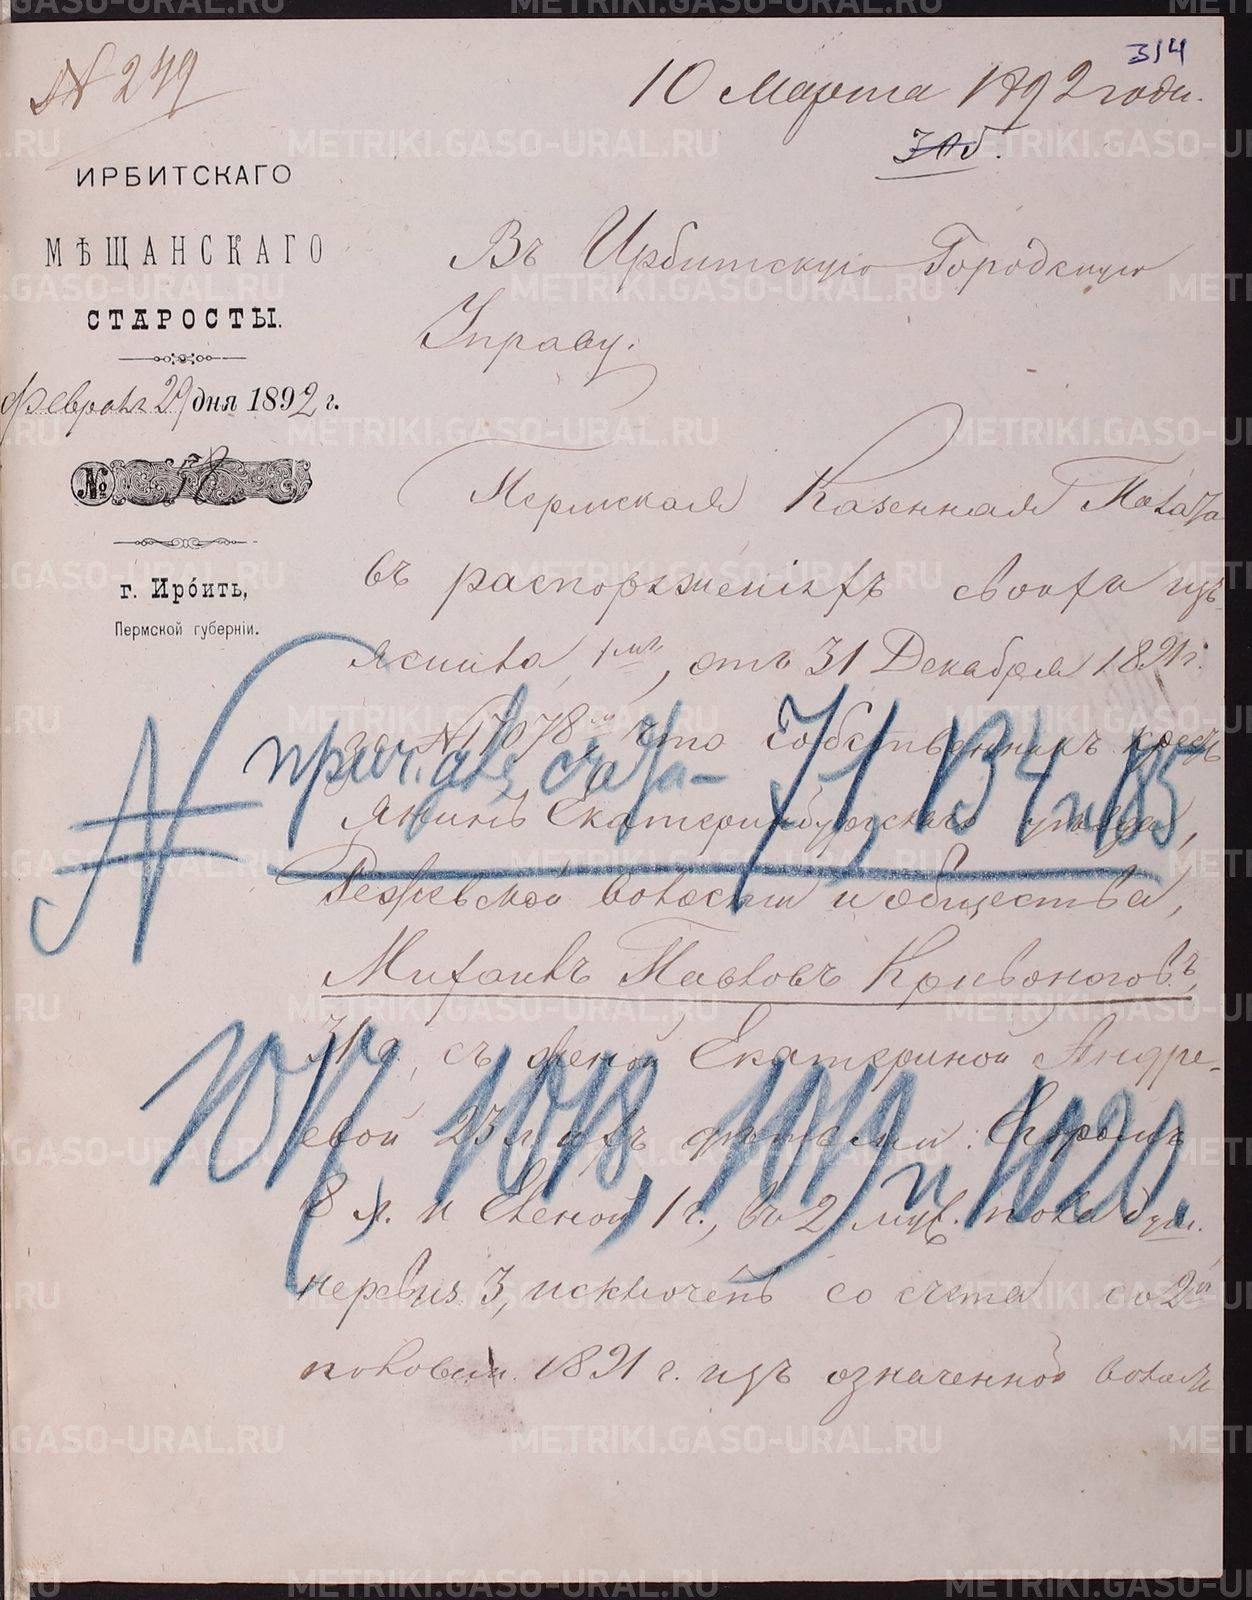 № 249
314
10 Марта 1892 года.
ИРБИТСКАГО
МѢЩАНСКАГО
СТАРОСТЫ.
Февраля 29 дня 1892 г.
№ 58
г. Ирбить,
Пермской губерніи.
Въ Ирбитскую Городскую
Управу.
Пермская Казенная Палата
въ распоряженіяхъ своихъ изъ
яснила, 1мъ, отъ 31 Декабря 1891 г.
за № 17078м, что собственникъ крестъ
янинъ Екатеринбургскаго уѣзда,
Режевской волости и общества,
Михаилъ Павловъ Кривоноговъ,
31 г., съ женой Екатериной Андре-
евой 23 л. и дѣтьми: Егоромъ
8 л. и Еленой 1 г., въ 2 муж. пола душ.
нерѣвиз. 3, исключенъ со счета со 2й
половин. 1891 г. изъ означенной волости
№ прич. счета- 71, 134 и 185
1017, 1018, 1019 и 1020.
METRIKI.GASO-URAL.RU